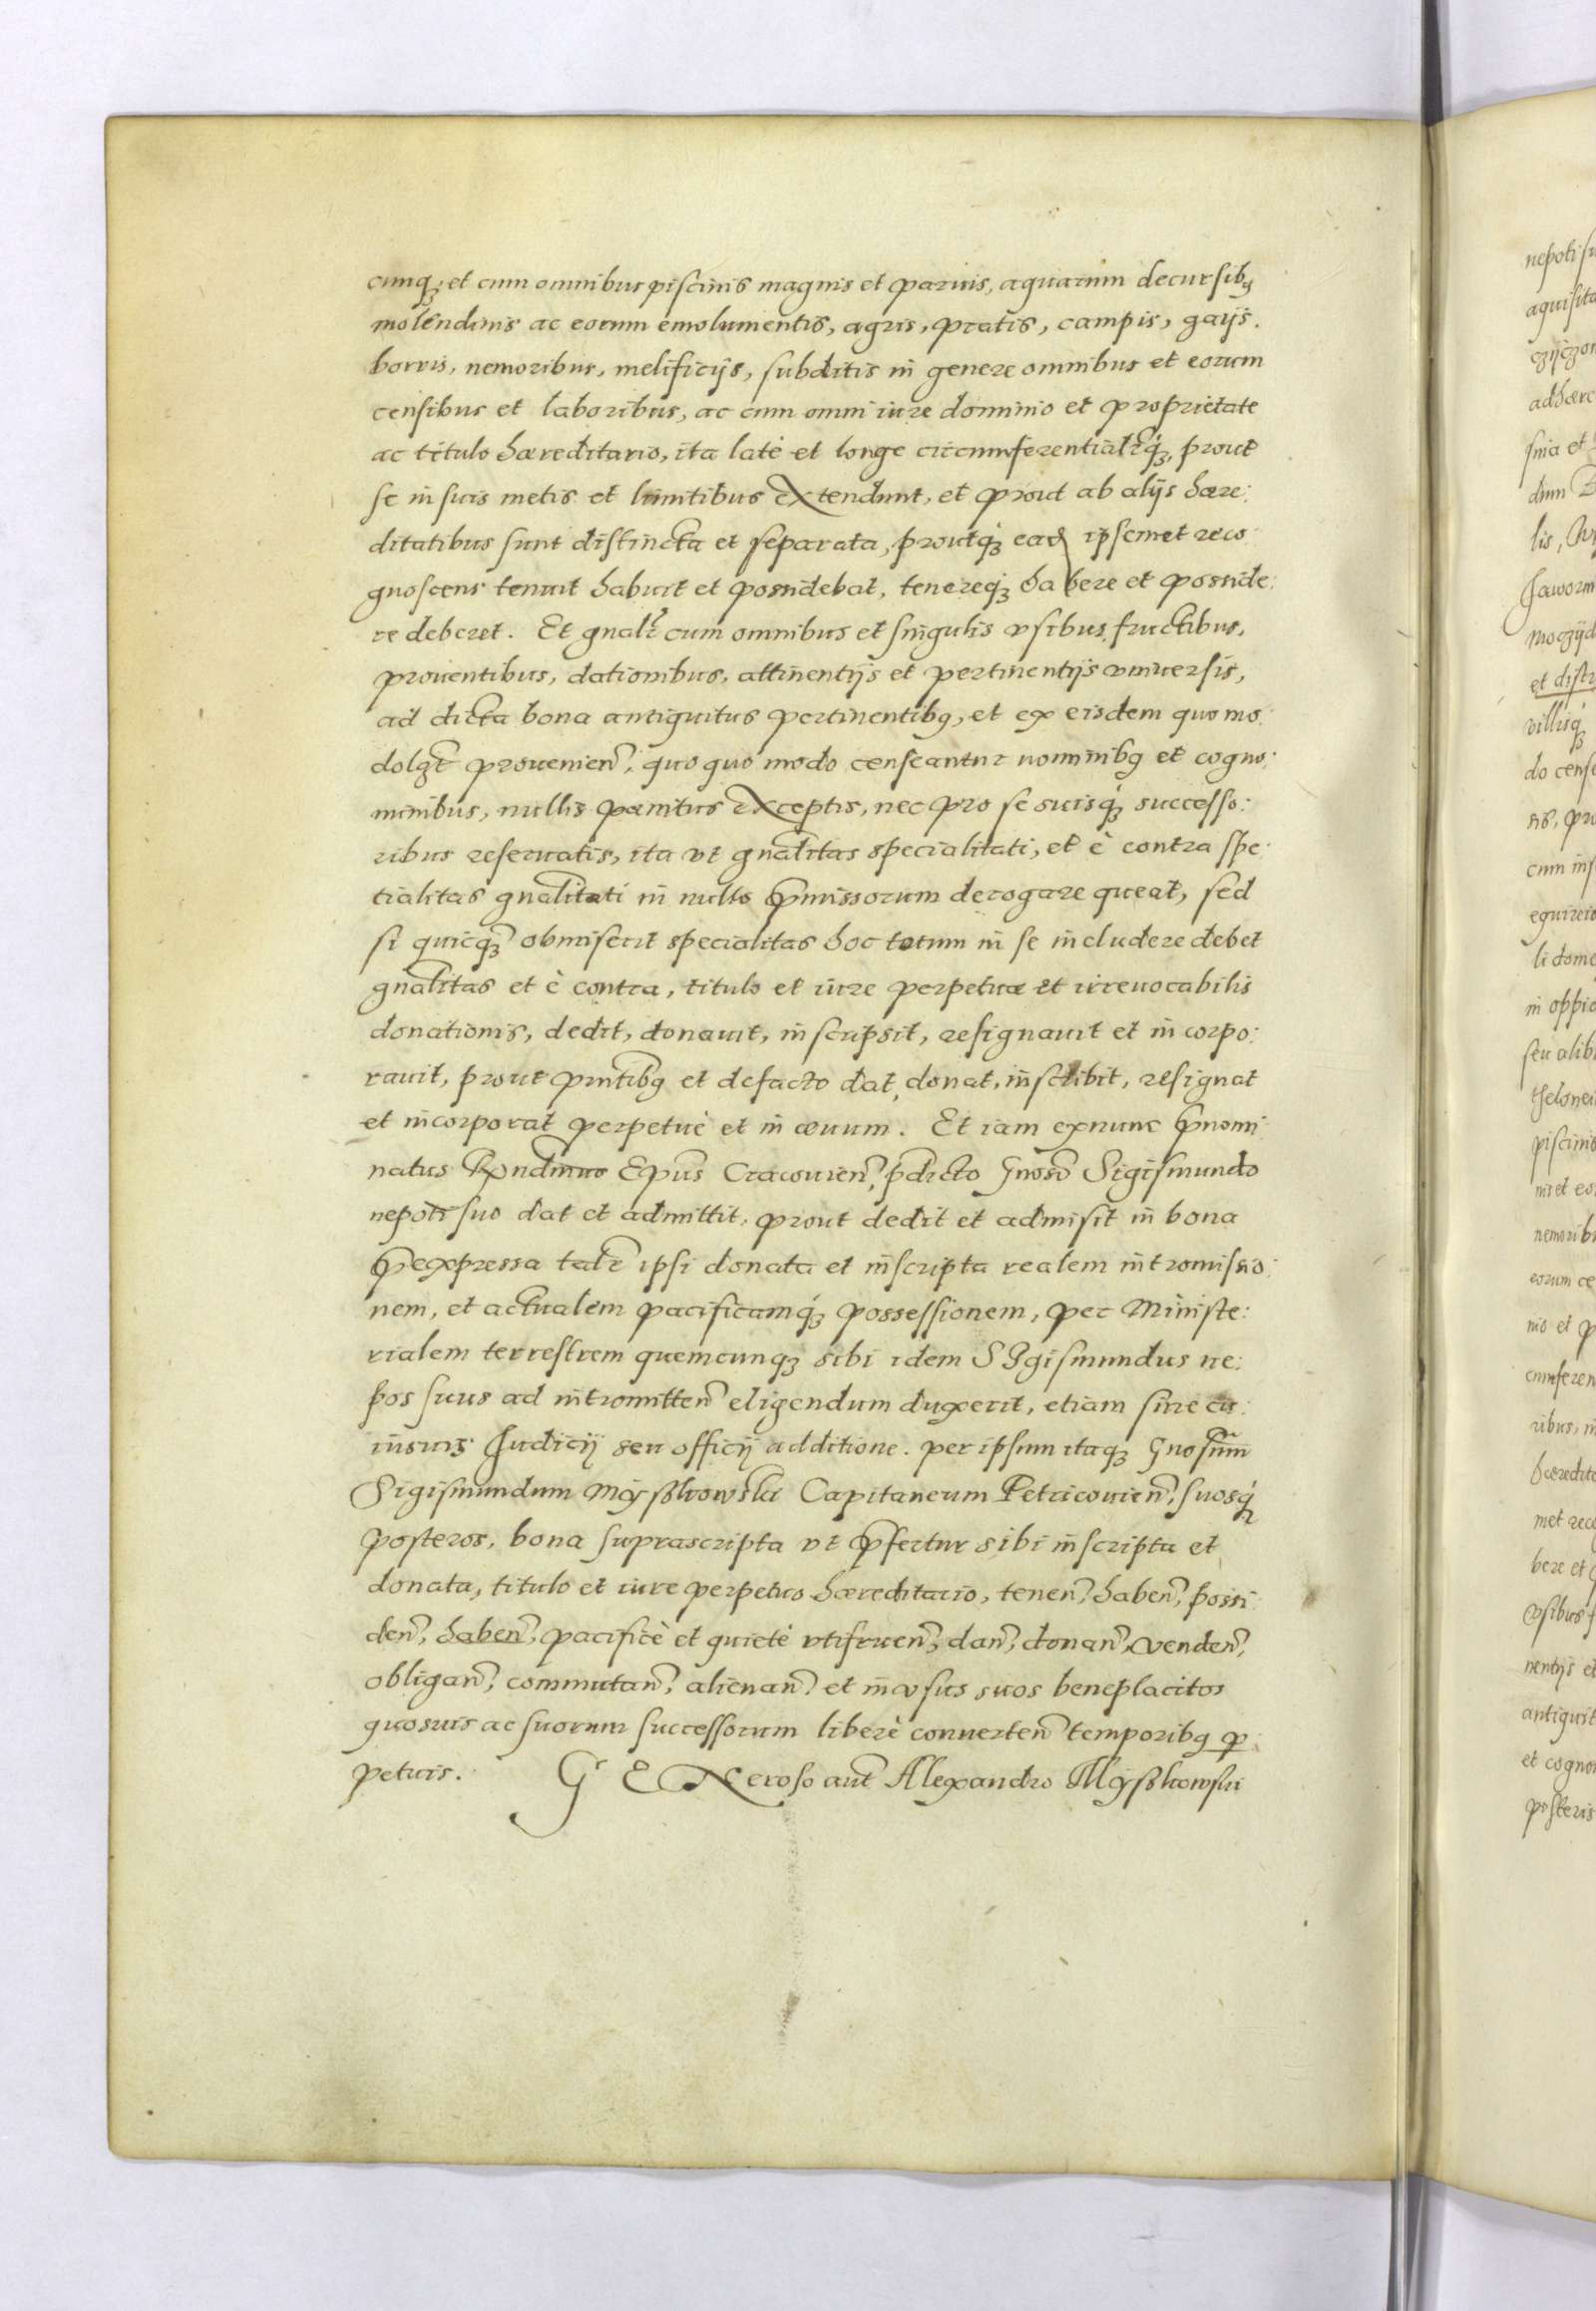 cunqꝫ et cum omnibus piscinis magnis et paruis, aquarum decursibꝰ
molendinis ac eorum emolumentis, agris, pratis, campis, gaijs.
borris, nemoribus, melificijs, subditis in genere omnibus et eorum
censibus et laboribus, ac cum omni iure dominio et proprietate
ac titulo hæreditario, ita latè et longe circumferentialr̃qꝫ, prout
se in suis metis et limitibus extendunt, et prout ab alijs hære:
ditatibus sunt distincta et separata, proutqꝫ ead ipsemet reco
gnoscens tenuit habuit et possidebat, tenereqꝫ habere et posside:
re deberet. Et gnalr̃ cum omnibus et singulis vsibus, fructibus,
prouentibus, dationibus, attinentijs et pertinentijs vniuersis,
ad dicta bona antiquitus pertinentibꝰ, et ex eisdem quo mo
dolꝫt prouenien̄, quo quo modo censeantur nominibꝰ et cogno:
minibus, nullis pænitus exceptis, nec pro se suisqꝫ successo:
ribus reseruatis, ita vt gnãlitas specialitati, et è contra spe
tialitas gnãlitati in nullo p̃missorum derogare queat, sed
si quicqꝫ obmiserit specialitas hoc totum in se includere debet
gnãlitas et è contra, titulo et iure perpetuæ et irreuocabilis
donationis, dedit, donauit, inscripsit, resignauit et in corpo:
rauit, prout pñtibꝰ et defacto dat, donat, inscribit, resignat
et incorporat perpetuè et in æuum. Et iam exnunc p̃nomi
natus Rx̃ndimus Epũs Cracouien̄, p̃dicto Gnoso Sigismundo
nepoti suo dat et admittit, prout dedit et admisit in bona
p̃expressa talr̃ ipsi donata et inscripta realem intromissio:
nem, et actualem pacificamqꝫ possessionem, per Ministe:
rialem terrestrem quemcunqꝫ sibi idem SIgismundus ne:
pos suus ad intromitten̄ eligendum duxerit, etiam sine cu:
iusuis Judicij seu officij additione. per ipsum itaqꝫ Gnosum̃
Sigismundum Myszkowski Capitaneum Petricouien̄, suosqꝫ
posteros, bona suprascripta vt p̃fertur sibi inscripta et
donata, titulo et iure perpetuo hæreditario, tenen̄, haben̄, possi
den̄, haben̄, pacificè et quietè vtifruen̄, dan̄, donan̄, venden̄,
obligan̄, commutan̄, alienan̄ et in vsus suos beneplacitos
quosuis ac suorum successorum liberè conuerten̄ temporibꝰ ꝑ
petuis. GENeroso aut̃ Alexandro Myszkowski